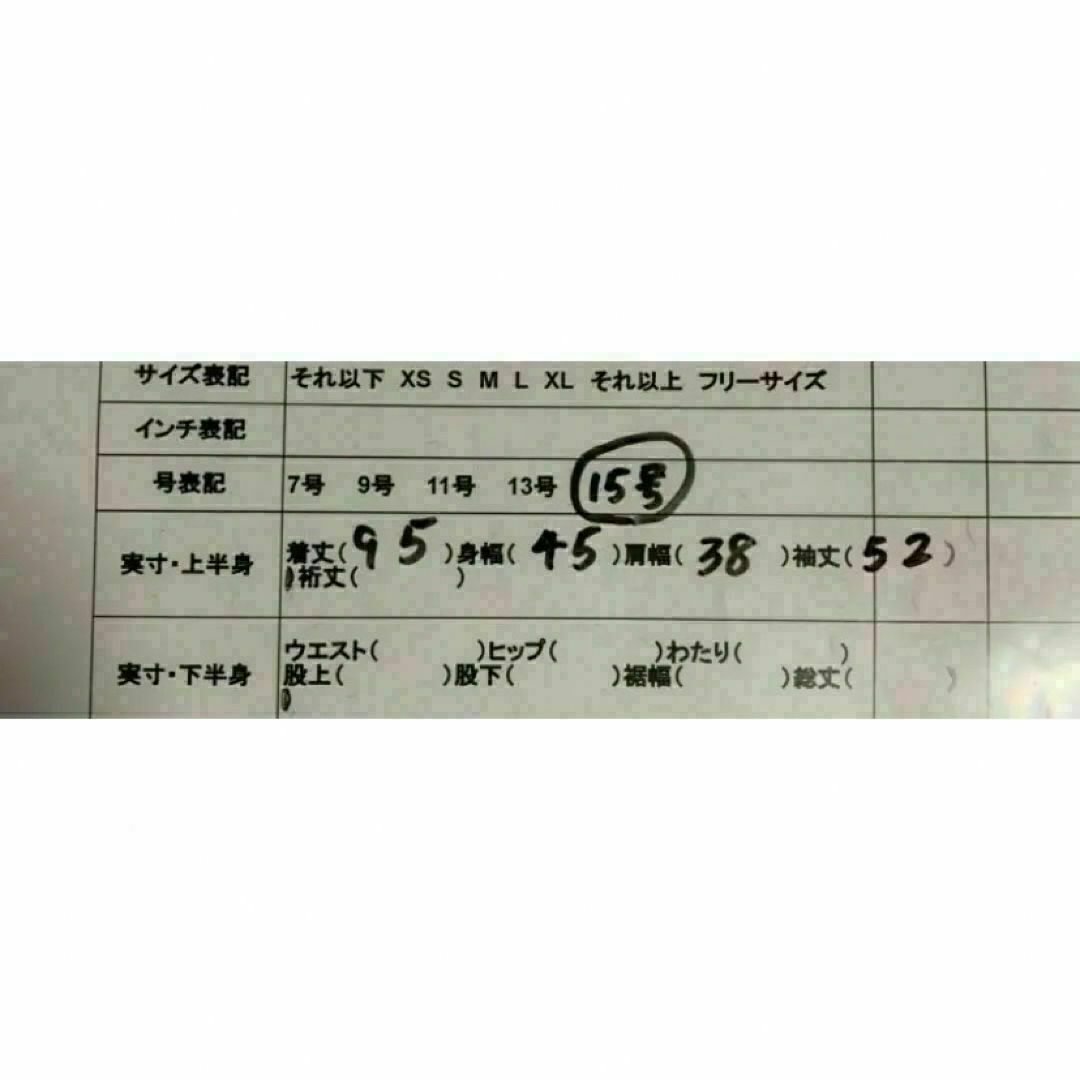 サイズ表記 それ以下 XS S M L XL それ以上 フリーサイズ
インチ表記
号表記 7号 9号 11号 13号 15号
実寸・上半身 着丈(95)身幅(45)肩幅(38)袖丈(52)
)裄丈( )
ウエスト( )ヒップ( )わたり( )
実寸・下半身 股上( )股下( )裾幅( )総丈( )
)